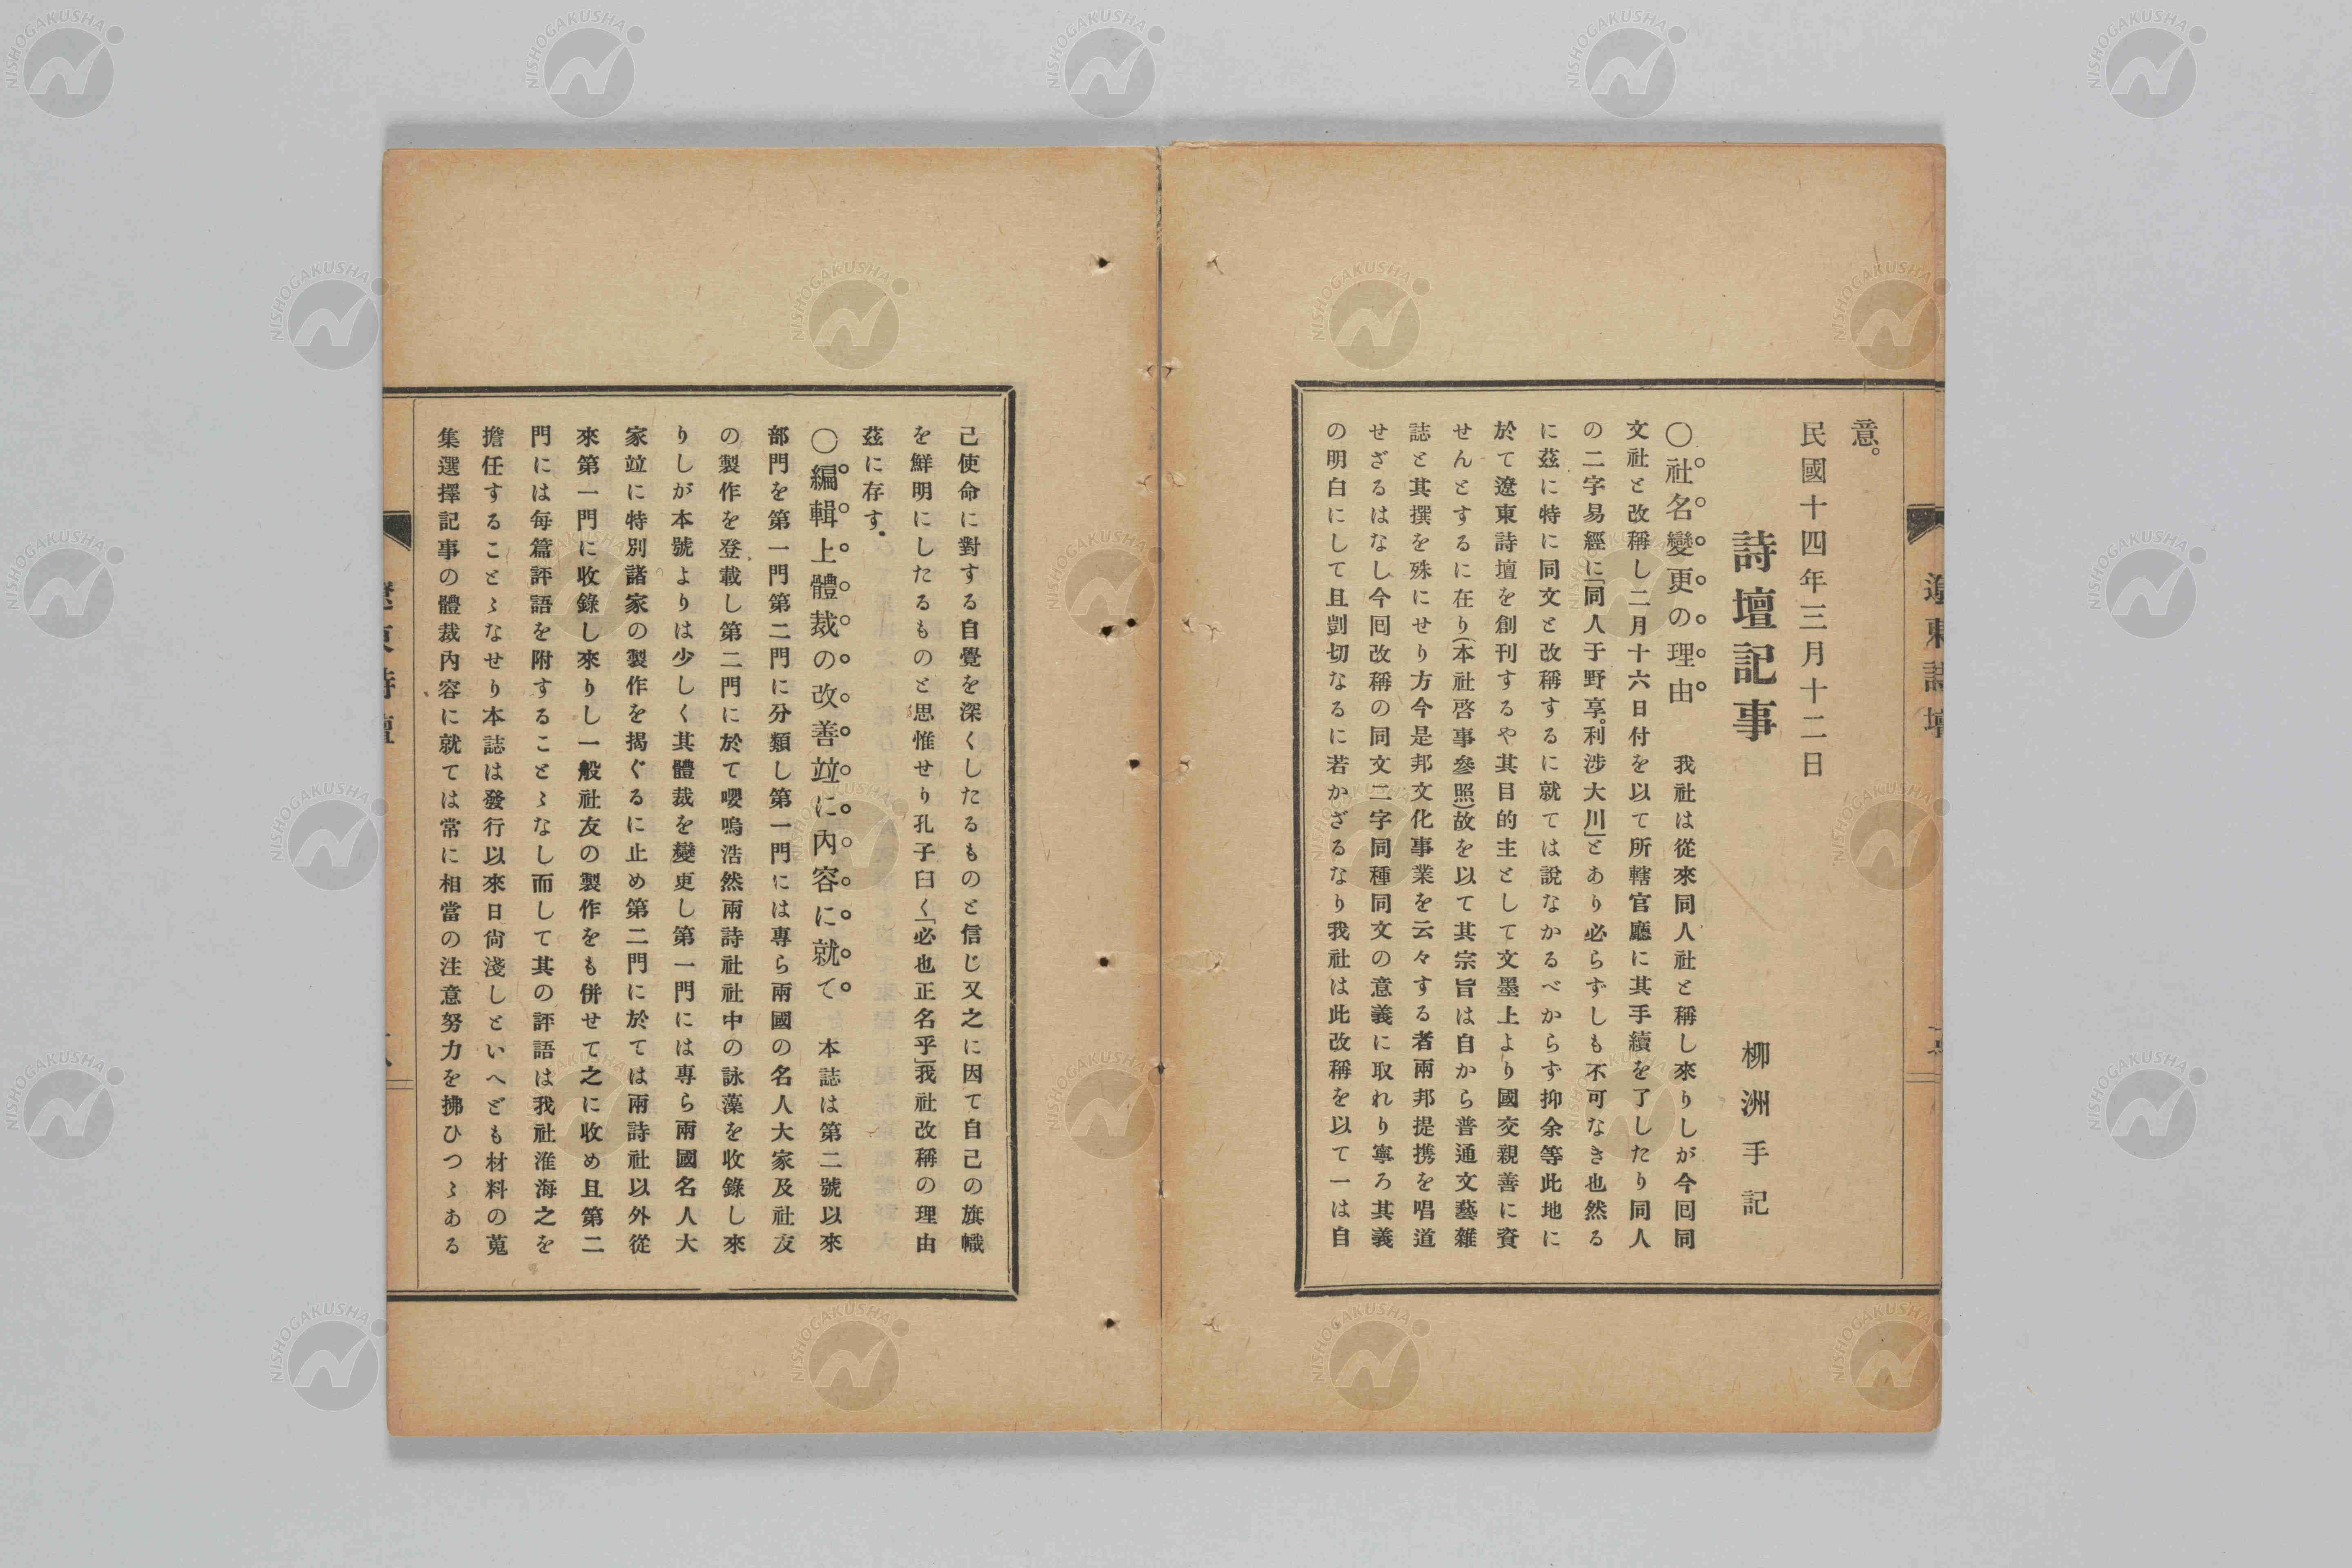 意。
民國十四年三月十二日
詩壇記事
柳洲手記
〇社名變更の理由　我社は從來同人社と稱し來りしが今囘同
文社と改稱し二月十六日付を以て所轄官廳に其手續を了したり同人
の二字易經に「同人于野享。利涉大川」とあり必らずしも不可なき也然る
に茲に特に同文と改稱するに就ては說なかるべからず抑余等此地に
於て遼東詩壇を創刊するや其目的主として文墨上より國交親善に資
せんとするに在り(本社啓事參照)故を以て其宗旨は自から普通文藝雜
誌と其撰を殊にせり方今是邦文化事業を云々する者兩邦提携を唱道
せざるはなし今囘改稱の同文二字同種同文の意義に取れり寧ろ其義
の明白にして且剴切なるに若かざるなり我社は此改稱を以て一は自
己使命に對する自覺を深くしたるものと信じ又之に因て自己の旗幟
を鮮明にしたるものと思惟せり孔子曰く「必也正名乎」我社改稱の理由
茲に存す.
〇編輯上體裁の改善竝に內容に就て　本誌は第二號以來
部門を第一門第二門に分類し第一門には專ら兩國の名人大家及社友
の製作を登載し第二門に於て嚶鳴浩然兩詩社社中の詠藻を收錄し來
りしが本號よりは少しく其體裁を變更し第一門には專ら兩國名人大
家竝に特別諸家の製作を揭ぐるに止め第二門に於ては兩詩社以外從
來第一門に收錄し來りし一般社友の製作をも併せて之に收め且第二
門には每篇評語を附することゝなし而して其の評語は我社淮海之を
擔任することゝなせり本誌は發行以來日尙淺しといへども材料の蒐
集選擇記事の體裁內容に就ては常に相當の注意努力を拂ひつゝある
遼東詩壇
NISHOGAKUSHA